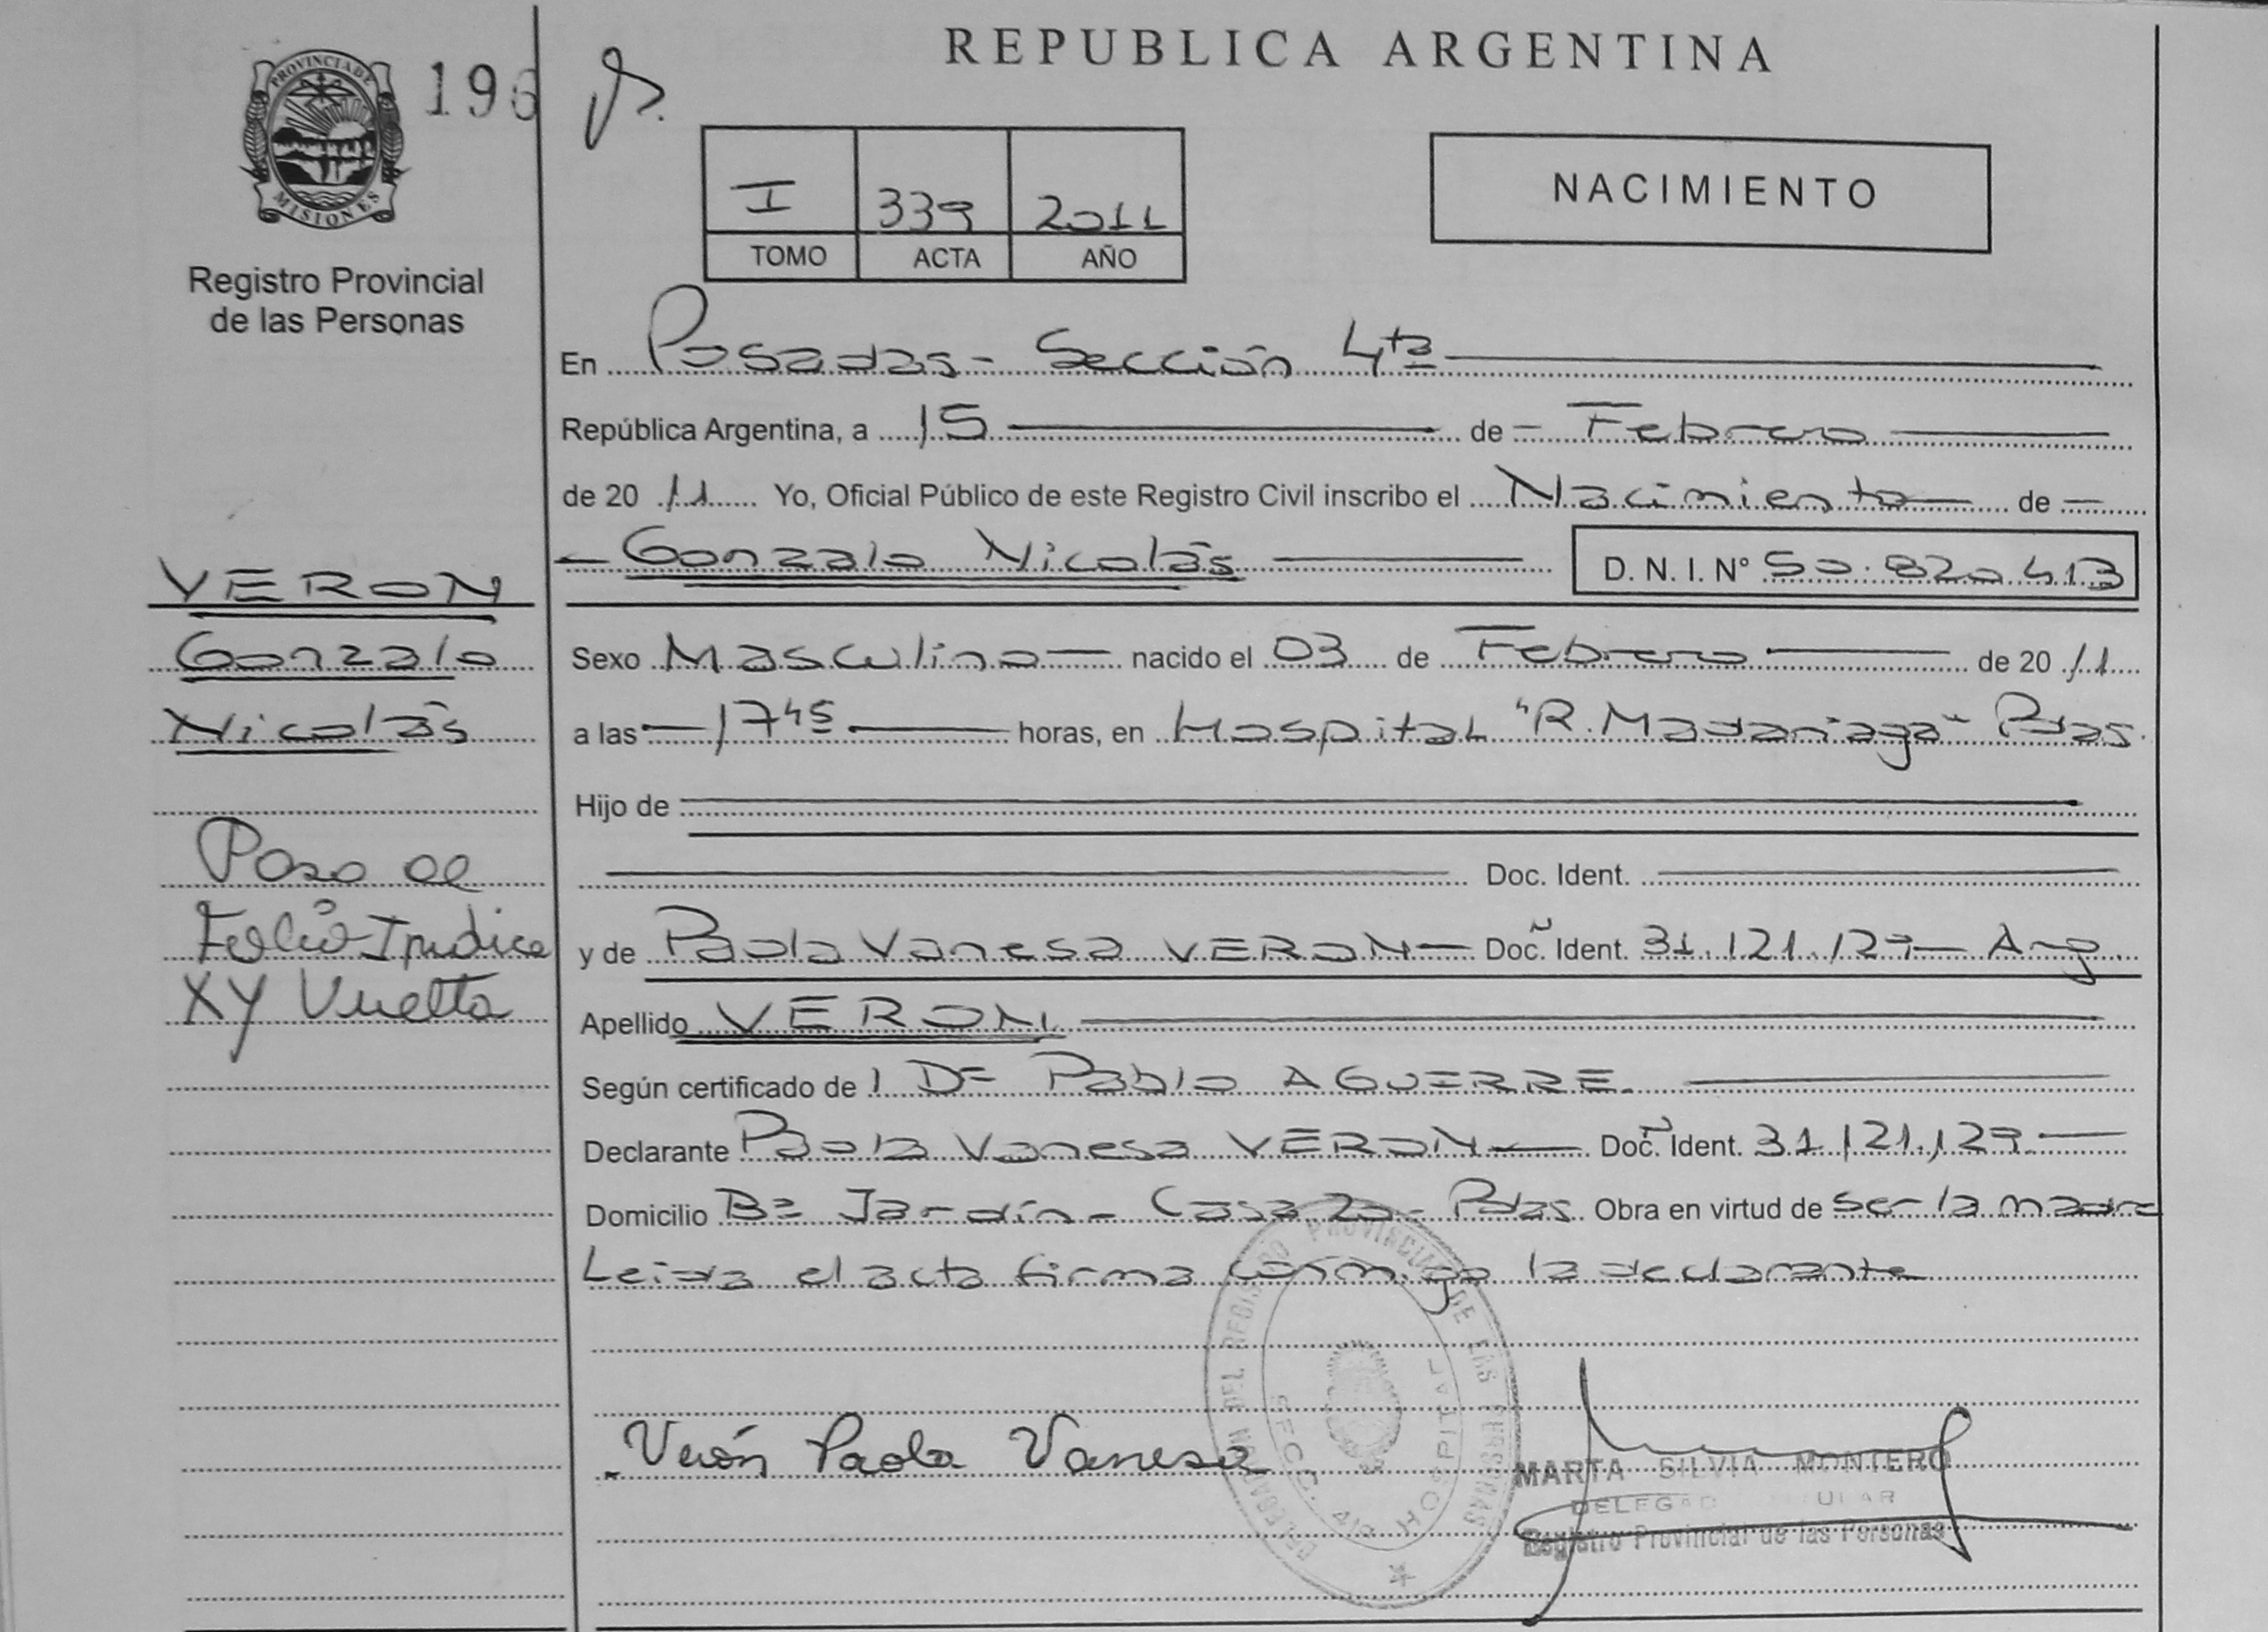 REPUBLICA ARGENTINA
PROVINCIA DE
MISIONES
196
Registro Provincial
de las Personas
I 339 2011
TOMO ACTA AÑO
NACIMIENTO
En Posadas - Sección 4ta
República Argentina, a 15 de Febrero
de 20 11 Yo, Oficial Público de este Registro Civil inscribo el Nacimiento de
Gonzalo Nicolás D. N. I. Nº 50.820.413
VERON
Gonzalo
Nicolás
Sexo Masculino nacido el 03 de Febrero de 20 11
a las 17 45 horas, en Hospital "R. Madariaga" Pdas.
Hijo de
Doc. Ident.
Paso al
Folio Indice
XY Vuelta
y de Paola Vanesa VERON Doc. Ident. 31.121.129 Arg.
Apellido VERON
Según certificado de Pablo AGUERRE.
Declarante Paola Vanesa VERON Doc. Ident. 31.121.129
Domicilio Bº Jardín - Casa 20 - Pdas Obra en virtud de ser la madre
Leida el acta firma conmigo la declarante
Verón Paola Vanesa
DELEGACION DEL REGISTRO PROVINCIAL DE LAS PERSONAS
SECC. 4ta HOSPITAL
MARTA SILVIA MONTERO
Registro Provincial de las Personas